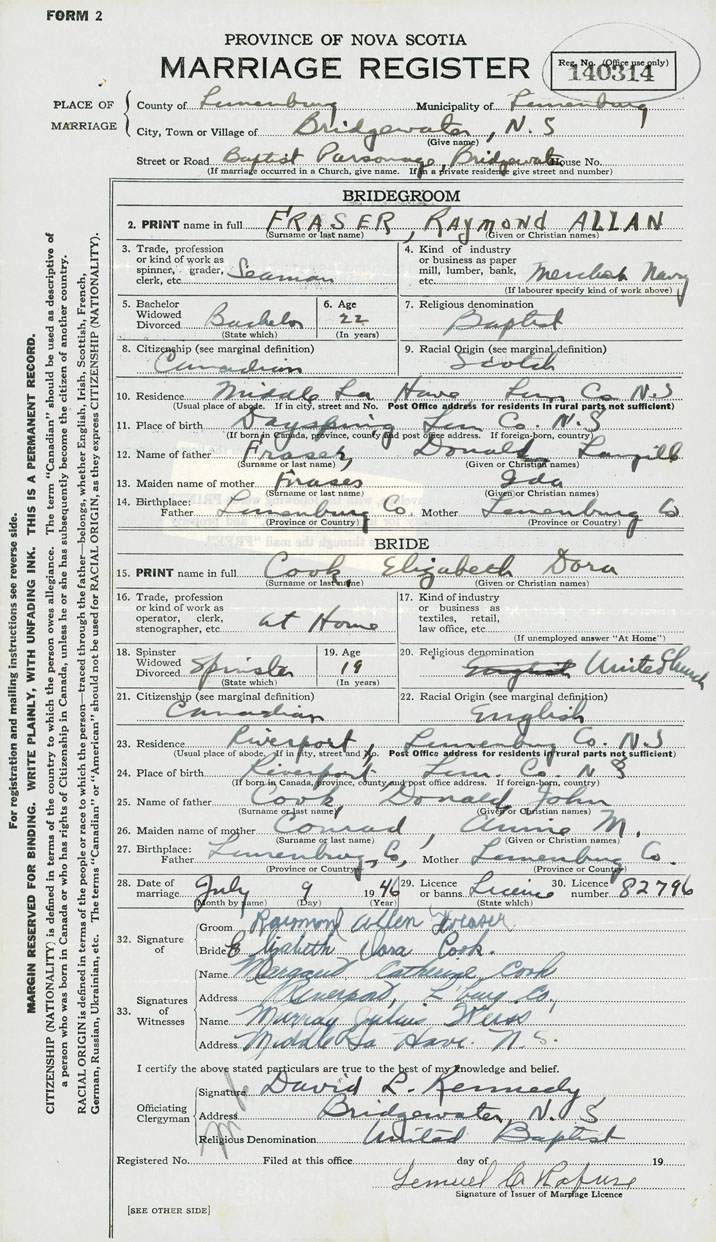 FORM 2
PROVINCE OF NOVA SCOTIA
MARRIAGE REGISTER
Reg. No. (Office use only)
140314
PLACE OF MARRIAGE
County of Lunenburg Municipality of Lunenburg
City, Town or Village of Bridgewater, N. S
(Give name)
Street or Road Baptist Parsonage, Bridgewater House No.
(If marriage occurred in a Church, give name. If in a private residence give street and number)
BRIDEGROOM
2. PRINT name in full FRASER, RAYMOND ALLAN
(Surname or last name) (Given or Christian names)
3. Trade, profession or kind of work as spinner, grader, clerk, etc. Seaman
4. Kind of industry or business as paper mill, lumber, bank, etc. Merchant Navy
(If labourer specify kind of work above)
5. Bachelor Widowed Divorced Bachelor
(State which)
6. Age 22
(In years)
7. Religious denomination Baptist
8. Citizenship (see marginal definition) Canadian
9. Racial Origin (see marginal definition) Scotch
10. Residence Middle La Have Lun Co N.S
(Usual place of abode. If in city, street and No. Post Office address for residents in rural parts not sufficient)
11. Place of birth Dayspring Lun Co. N.S
(If born in Canada, province, county and post office address. If foreign-born, country)
12. Name of father Fraser, Donald Langill
(Surname or last name) (Given or Christian names)
13. Maiden name of mother Fraser Ida
(Surname or last name) (Given or Christian names)
14. Birthplace: Father Lunenburg Co. Mother Lunenburg Co
(Province or Country) (Province or Country)
BRIDE
15. PRINT name in full Cook, Elizabeth Dora
(Surname or last name) (Given or Christian names)
16. Trade, profession or kind of work as operator, clerk, stenographer, etc. at Home
17. Kind of industry or business as textiles, retail, law office, etc.
(If unemployed answer "At Home")
18. Spinster Widowed Divorced Spinster
(State which)
19. Age 19
(In years)
20. Religious denomination English United Church
21. Citizenship (see marginal definition) Canadian
22. Racial Origin (see marginal definition) English
23. Residence Riverport, Lunenburg Co. N.S
(Usual place of abode. If in city, street and No. Post Office address for residents in rural parts not sufficient)
24. Place of birth Riverport Lun. Co. N S
(If born in Canada, province, county and post office address. If foreign-born, country)
25. Name of father Cook, Donald John
(Surname or last name) (Given or Christian names)
26. Maiden name of mother Conrad, Annie M.
(Surname or last name) (Given or Christian names)
27. Birthplace: Father Lunenburg, Co, Mother Lunenburg Co.
(Province or Country) (Province or Country)
28. Date of marriage July 9 1946
(Month by name) (Day) (Year)
29. Licence or banns Licence
(State which)
30. Licence number 82796
32. Signature of
Groom Raymond Allen Fraser
Bride Elizabeth Dora Cook.
33. Signatures of Witnesses
Name Margaret Catherine Cook
Address Riverport, L'burg Co,
Name Murray Julius
Address Middle La Have. N.S.
I certify the above stated particulars are true to the best of my knowledge and belief.
Officiating Clergyman
Signature David L. Kennedy
Address Bridgewater, N. S
Religious Denomination United Baptist
Registered No. Filed at this office day of 19
Lemuel C Rafuse
Signature of Issuer of Marriage Licence
[SEE OTHER SIDE]
For registration and mailing instructions see reverse side.
MARGIN RESERVED FOR BINDING. WRITE PLAINLY, WITH UNFADING INK. THIS IS A PERMANENT RECORD.
CITIZENSHIP (NATIONALITY) is defined in terms of the country to which the person owes allegiance. The term "Canadian" should be used as descriptive of
a person who was born in Canada or who has rights of Citizenship in Canada, unless he or she has subsequently become the citizen of another country.
RACIAL ORIGIN is defined in terms of the people or race to which the person—traced through the father—belongs, whether English, Irish, Scottish, French,
German, Russian, Ukrainian, etc. The terms "Canadian" or "American" should not be used for RACIAL ORIGIN, as they express CITIZENSHIP (NATIONALITY).